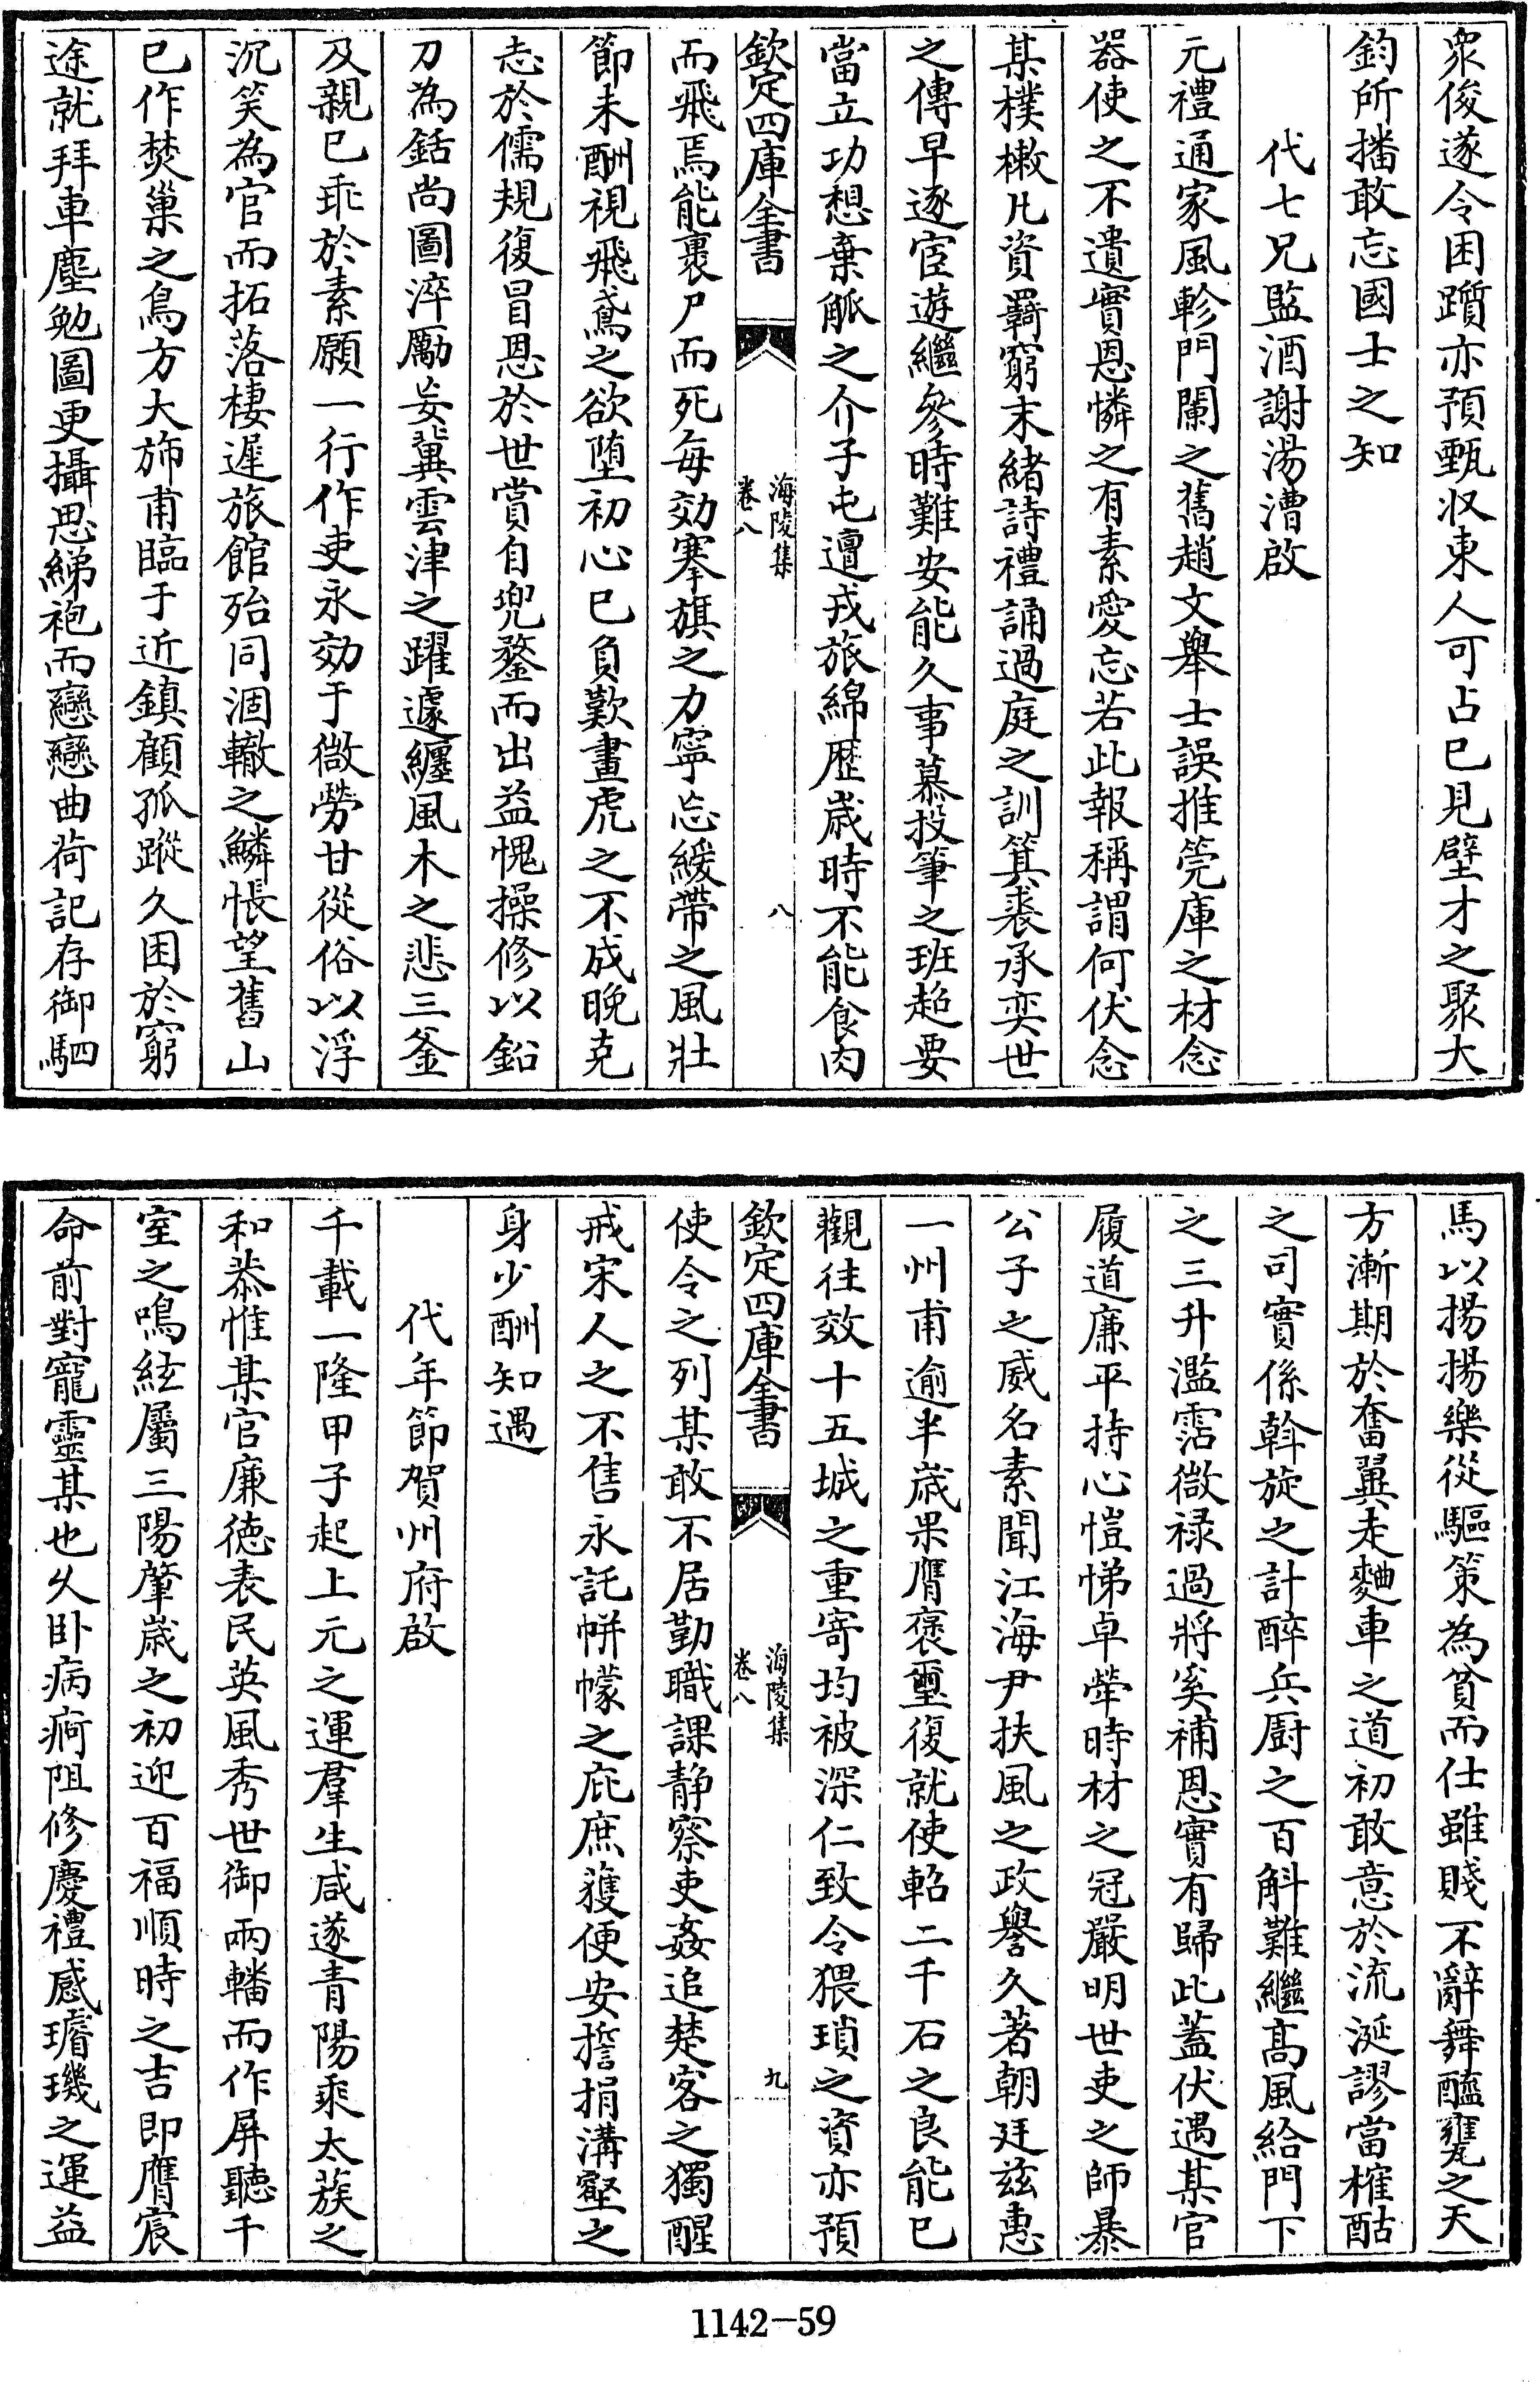 衆俊遂令困躓亦預甄収東人可占已見壁才之聚大
鈞所播敢忘國士之知
代七兄監酒謝湯漕啟
元禮通家風軫門闌之舊趙文舉士誤推筦庫之材念
器使之不遺實恩憐之有素愛忘若此報稱謂何伏念
某樸樕凡資羇窮末緒詩禮誦過庭之訓箕裘承奕世
之傳早逐宦遊繼參時難安能久事慕投筆之班超要
當立功想棄觚之介子屯邅戎旅綿歴歲時不能食肉
欽定四庫全書
海陵集
卷八
八
而飛焉能裹尸而死每効搴旗之力寧忘緩帶之風壯
節未酬視飛鳶之欲墮初心已負歎畫虎之不成晚克
志於儒規復冒恩於世賞自兜鍪而出益愧操修以鉛
刀為銛尚圖淬勵妄冀雲津之躍遽纏風木之悲三釜
及親已乖於素願一行作吏永効于微勞甘從俗以浮
沉笑為官而拓落棲遲旅館殆同涸轍之鱗悵望舊山
已作焚巢之鳥方大斾甫臨于近鎮顧孤蹤久困於窮
途就拜車塵勉圖更攝思綈袍而戀戀曲荷記存御駟
馬以揚揚樂從驅策為貧而仕雖賤不辭舞醯甕之天
方漸期於奮翼走麯車之道初敢意於流涎謬當榷酤
之司實係斡旋之計醉兵厨之百斛難繼髙風給門下
之三升濫霑微禄過將奚補恩實有歸此蓋伏遇某官
履道廉平持心愷悌卓犖時材之冠嚴明世吏之師暴
公子之威名素聞江海尹扶風之政譽久著朝廷兹惠
一州甫逾半歲果膺褒璽復就使軺二千石之良能已
觀往效十五城之重寄均被深仁致令猥瑣之資亦預
欽定四庫全書
海陵集
卷八
九
使令之列某敢不居勤職課静察吏姦追楚客之獨醒
戒宋人之不售永託帡幪之庇庶獲便安誓捐溝壑之
身少酬知遇
代年節賀州府啟
千載一隆甲子起上元之運羣生咸遂青陽乘太蔟之
和恭惟某官廉徳表民英風秀世御兩轓而作屏聽千
室之鳴絃屬三陽肇歲之初迎百福順時之吉即膺宸
命前對寵靈某也久卧病痾阻修慶禮感璿璣之運益
1142-59